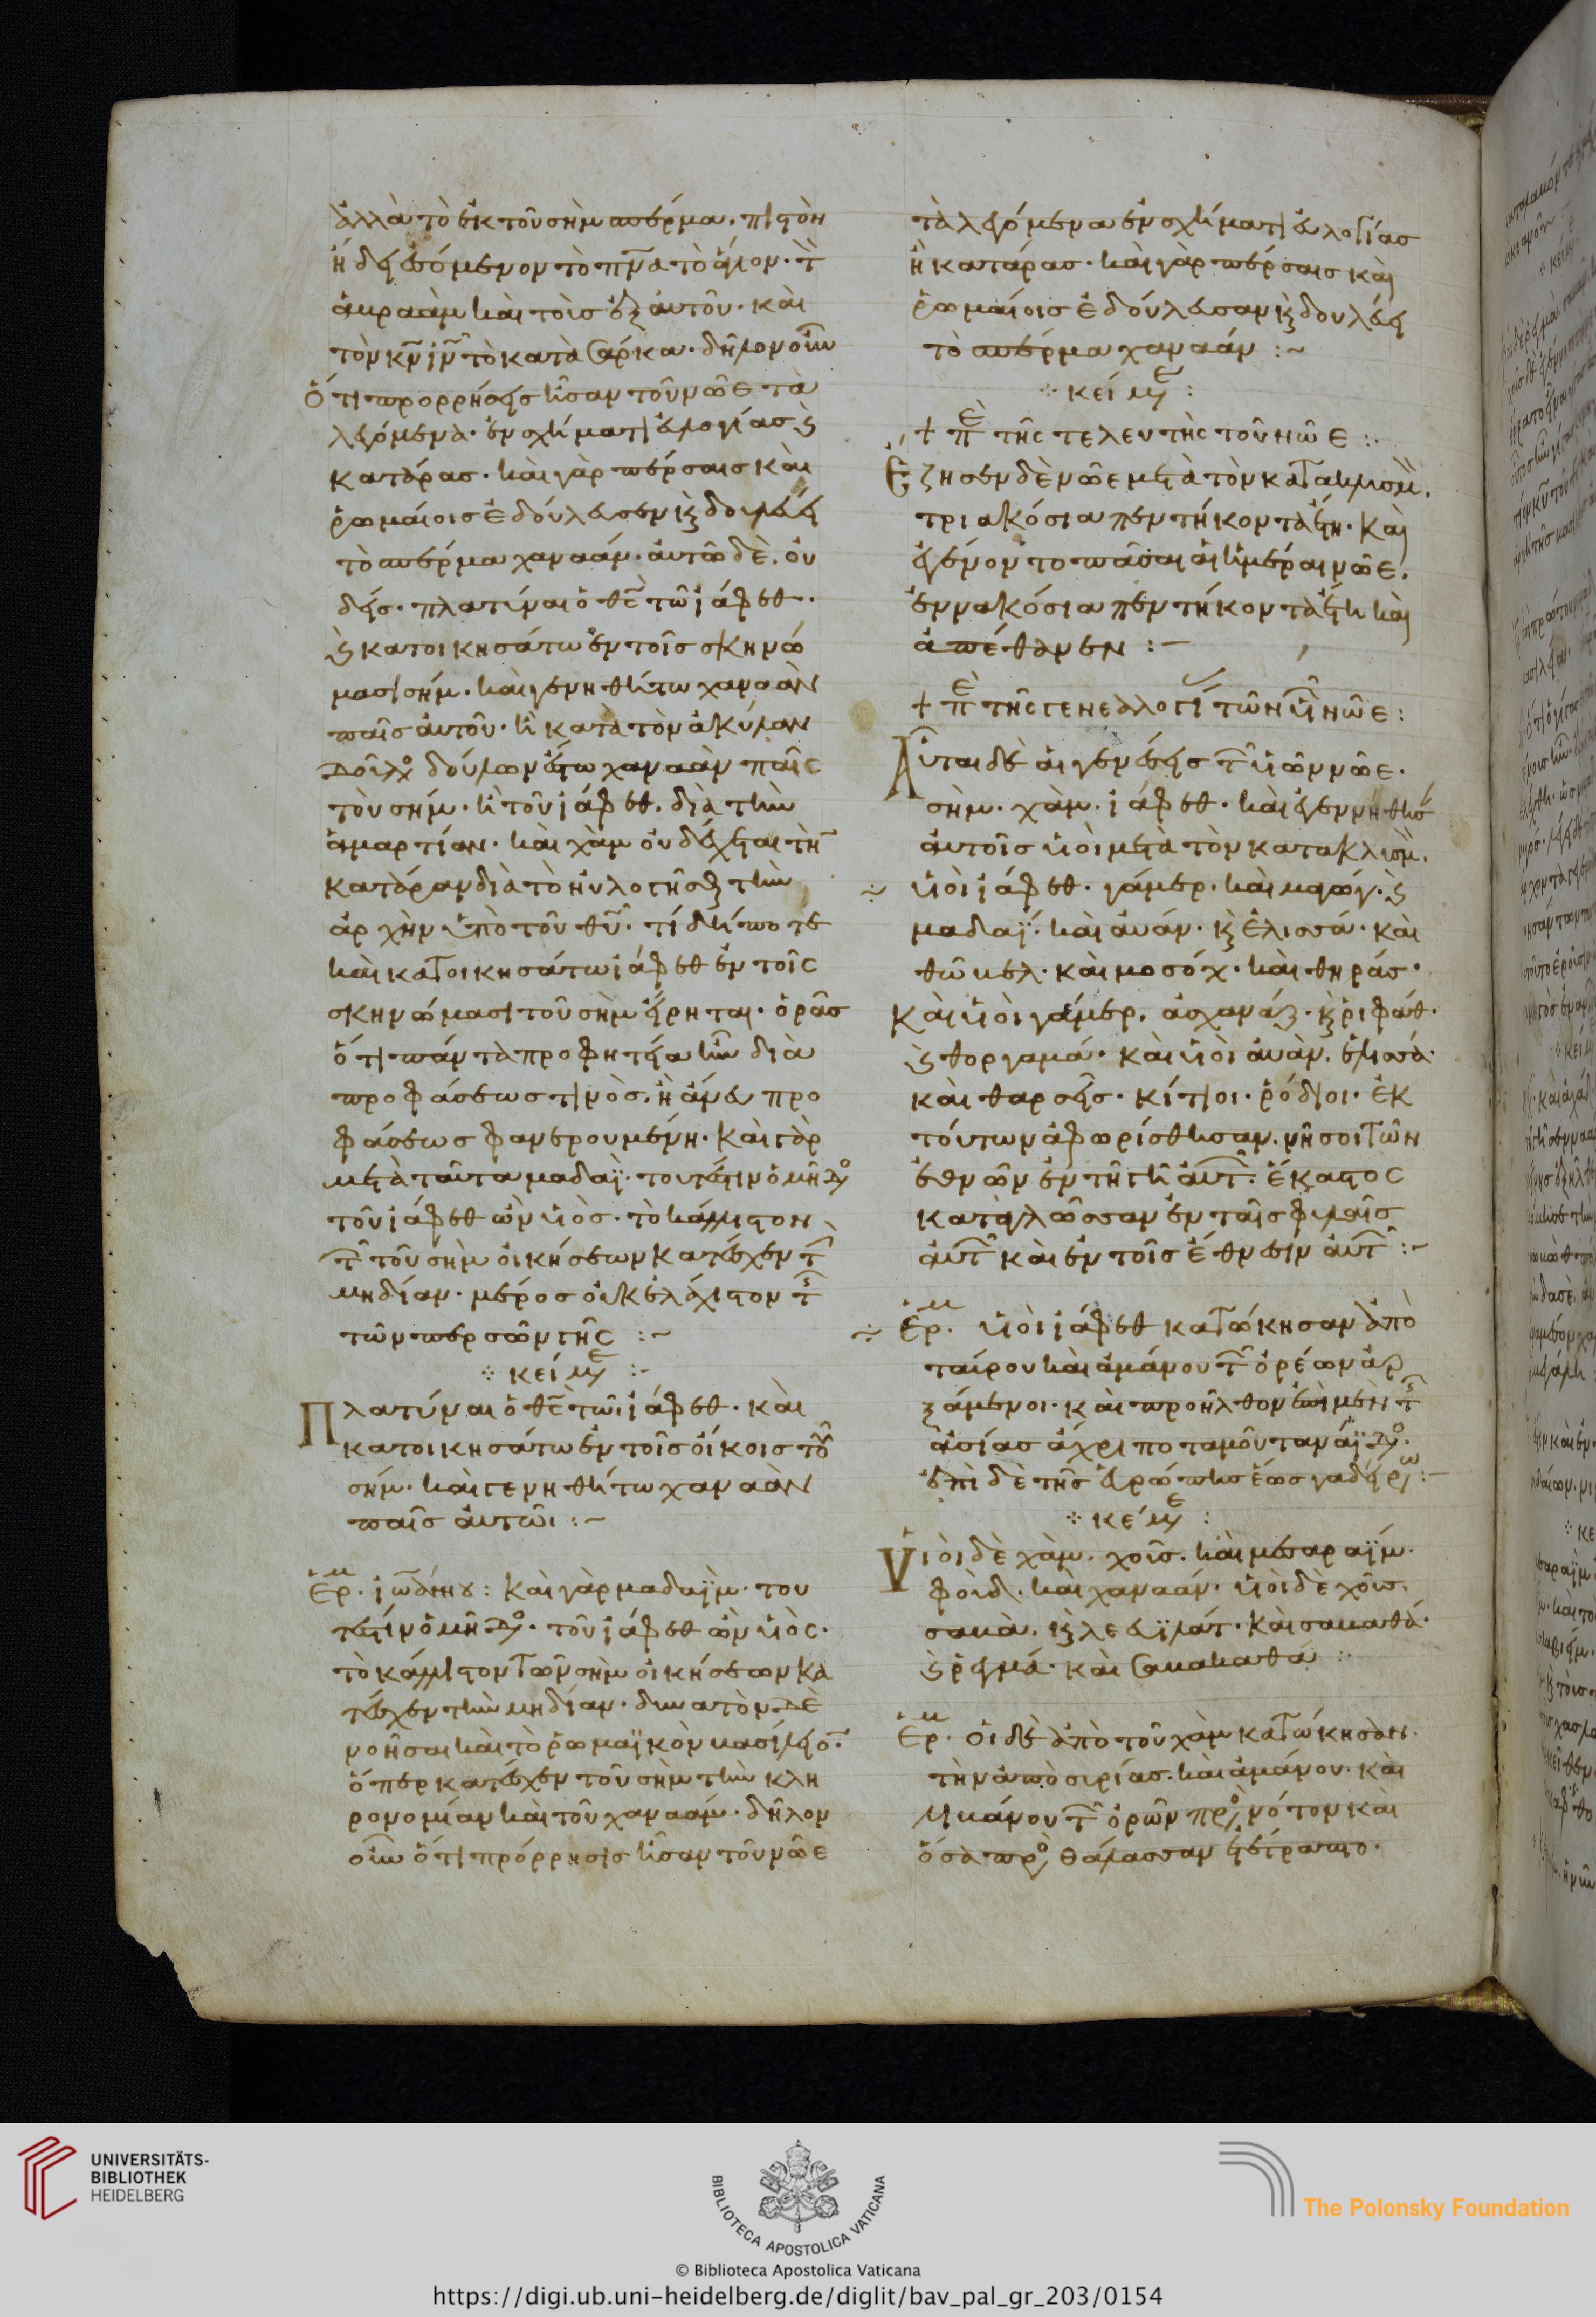 ἀλλὰ τὸ ἐκ τοῦ σὴμ σπέρμα. πιστὸν
ἤδει ἐσόμενον τὸ πν̅α τὸ ἅγιον. τ̅
ἀβραὰμ καὶ τοῖς ἐξ αὐτοῦ. καὶ
τὸν κν̅ ιν̅ τὸ κατὰ σάρκα. δῆλον οὖν
ὅτι προρρήσεις ἦσαν τοῦ νῶε τὰ
λεγόμενα. ἐν σχήματι εὐλογίας ἢ
κατάρας. καὶ γὰρ πέρσαις καὶ
ῥωμαίοις ἐδούλευσεν κ̀ δουλεύει
τὸ σπέρμα χαναάν. αὐτῶ δὲ. οὐ
δείς. πλατύναι ὁ θς̅ τῶ ἰάφεθ.
κ̀ κατοικησάτω ἐν τοῖς σκηνώ
μασι σήμ. καὶ γενηθήτω χαναὰν
παῖς αὐτοῦ. ἢ κατὰ τὸν ἀκύλαν
δοῦλος δούλων ἔστω χαναὰν παῖς
τὸν σήμ. ἢ τοῦ ἰάφεθ. διὰ τὴν
ἁμαρτίαν. καὶ χὰμ οὐ δέχεται τὴν
κατάραν διὰ τὸ ηὐλογῆσθαι τὴν
ἀρχὴν ὑπὸ τοῦ θυ̅. τί δήποτε
καὶ κατοικησάτω ἰάφεθ ἐν τοῖς
σκηνώμασι τοῦ σὴμ εἴρηται. ὁρᾶς
ὅτι πάντα προφητεία ἦν διὰ
προφάσεως τινὸς. ἢ ἄνευ προ
φάσεως φανερουμένη. καὶ γὰρ
μετὰ ταῦτα μαδαὶ. τουτέστιν ὁ μῆδο
τοῦ ἰάφεθ ὢν υἱὸς. τὸ κάλλιστον
τ̅ τοῦ σὴμ οἰκήσεων κατέσχεν τ̅
μηδίαν. μέρος οὐκ ἐλάχιστον τ̅
τῶν περσῶν γῆς :~
κείμε
Πλατύναι ὁ θς̅ τῶι ἰάφεθ. καὶ
κατοικησάτω ἐν τοῖς οἴκοις τοῦ
σήμ. καὶ γενηθήτω χαναὰν
παῖς αὐτῶι :~
Ἑρμ. ἰωσήπου : καὶ γὰρ μαδαϊμ. του
τέστιν ὁ μῆδο. τοῦ ἰάφεθ ὢν υἱὸς.
τὸ κάλλιστον τῶν σὴμ οἰκήσεων κα
τέσχεν τὴν μηδίαν. δυνατὸν δὲ
νοῆσαι καὶ τὸ ῥωμαϊκὸν βασίλειον.
ὅπερ κατέσχεν τοῦ σὴμ τὴν κλη
ρονομίαν καὶ τοῦ χαναάμ. δῆλον
οὖν ὅτι πρόρρησις ἦσαν τοῦ νῶε
τὰ λεγόμενα ἐν σχήματι εὐλογίας
ἢ κατάρας. καὶ γὰρ πέρσαις καὶ
ῥωμαίοις ἐδούλευσαν κ̀ δουλεύει
τὸ σπέρμα χαναάν :~
κείμε :
+ πε τῆς τελευτῆς τοῦ νῶε :.
Ἔζησεν δὲ νῶε μετὰ τὸν κατακλυσμ.
τριακόσια πεντήκοντα ἔτη. καὶ
ἐγένοντο πᾶσαι αἱ ἡμέραι νῶε.
ἐννακόσια πεντήκοντα ἔτη καὶ
ἀπέθανεν :—
+ πε τῆς γενεαλογί τῶν υἱ νῶε :
Αὗται δὲ αἱ γενέσεις τ̅ υἱῶν νῶε.
σὴμ. χὰμ. ἰάφεθ. καὶ ἐγεννήθησ
αὐτοῖς υἱοὶ μετὰ τὸν κατακλυσμ.
υἱοὶ ἰάφεθ. γάμερ. καὶ μαγώγ. κ̀
μαδαϊ. καὶ αυάν. κ̀ ἐλισσά. καὶ
θῶβελ. καὶ μοσόχ. καὶ θηράς.
καὶ υἱοὶ γάμερ. ἀσχανάζ. κ̀ ῥιφάθ.
κ̀ θοργαμά. καὶ υἱοὶ αυὰν. ἐλισσά.
καὶ θαρσεὶς. κίτιοι. ῥόδιοι. ἐκ
τούτων ἀφωρίσθησαν. νῆσοι τῶν
ἐθνῶν ἐν τῆ γῆ αὐτ. ἕκαστος
κατὰ γλῶσσαν ἐν ταῖς φυλαῖς
αὐτ καὶ ἐν τοῖς ἔθνεσιν αὐτ :~
Ἑρμ. υἱοὶ ἰάφεθ κατώκησαν ἀπὸ
ταύρου καὶ ἀμάνου τ̅ ὀρέων ἀρ
ξάμενοι. καὶ προῆλθον ἐπὶ μὲν τ̅
ἀσίας ἄχρι ποταμοῦ ταναΐδο.
ἐπὶ δὲ τῆς εὐρώπης ἕως γαδείρω :—
κείμε :
Υἱοὶ δὲ χὰμ. χοῦς. καὶ μεσαραϊμ.
φοὺδ. καὶ χαναάν. υἱοὶ δὲ χοῦς.
σαβὰ. κ̀ λευϊλάτ. καὶ σαβαθά.
κ̀ ῥεγμά. καὶ σαβακαθά :.
Ἑρμ. οἱ δὲ ἀπὸ τοῦ χὰμ κατώκησαν.
τὴν ἀπὸ συρίας. καὶ ἀμάνου. καὶ
λιβάνου τ̅ ὀρῶν πρὸ νότον καὶ
ὅσα πρὸ θάλασσαν ἐτέτραπτο.
UNIVERSITÄTS-
BIBLIOTHEK
HEIDELBERG
BIBLIOTECA APOSTOLICA VATICANA
The Polonsky Foundation
© Biblioteca Apostolica Vaticana
https://digi.ub.uni-heidelberg.de/diglit/bav_pal_gr_203/0154